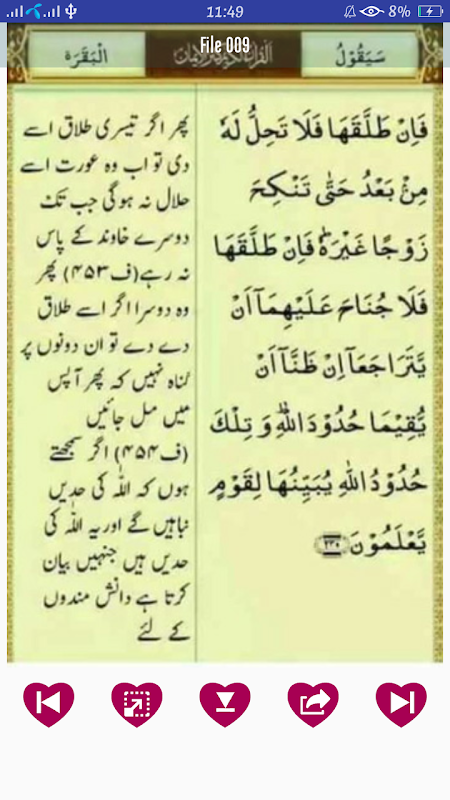 11:49
8%
File 009
سَيَقُوْلُ
الْبَقَرَة
فَاِنْ طَلَّقَهَا فَلَا تَحِلُّ لَهٗ
مِنْۢ بَعْدُ حَتّٰى تَنْكِحَ
زَوْجًا غَيْرَهٗ ؕ فَاِنْ طَلَّقَهَا
فَلَا جُنَاحَ عَلَيْهِمَاۤ اَنْ
يَّتَرَاجَعَاۤ اِنْ ظَنَّاۤ اَنْ
يُّقِيْمَا حُدُوْدَ اللّٰهِ ؕ وَ تِلْكَ
حُدُوْدُ اللّٰهِ يُبَيِّنُهَا لِقَوْمٍ
يَّعْلَمُوْنَ ﴿۲۳۰﴾
پھر اگر تیسری طلاق اسے
دی تو اب وہ عورت اسے
حلال نہ ہوگی جب تک
دوسرے خاوند کے پاس
نہ رہے (ف۴۵۳) پھر
وہ دوسرا اگر اسے طلاق
دے دے تو ان دونوں پر
گناہ نہیں کہ پھر آپس
میں مل جائیں
(ف۴۵۴) اگر سمجھتے
ہوں کہ اللہ کی حدیں
نباہیں گے اور یہ اللہ کی
حدیں ہیں جنہیں بیان
کرتا ہے دانش مندوں
کے لئے